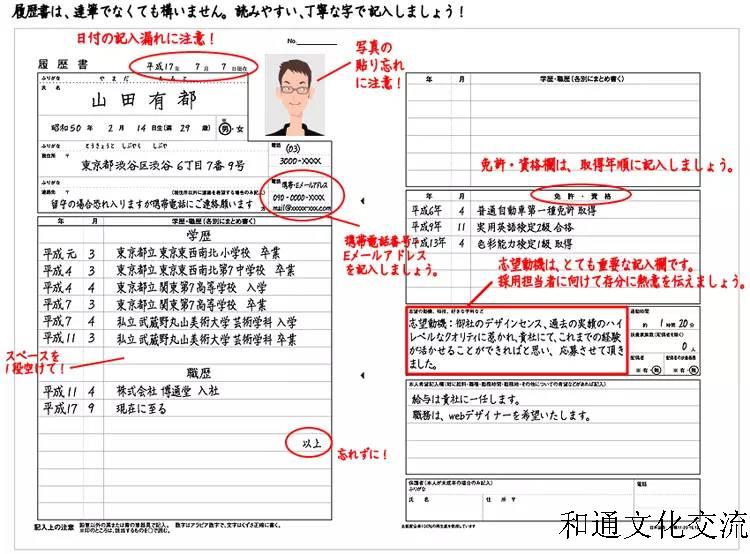 履歴書は、達筆でなくても構いません。読みやすい、丁寧な字で記入しましょう！
日付の記入漏れに注意！
No.
履歴書
平成17年 7月 7日現在
写真の
貼り忘れ
に注意！
ふりがな
氏名
山田有都
昭和50年 2月 14日生(満 29 歳)
男・女
ふりがな とうきょうと しぶやく しぶや
現住所 〒
東京都渋谷区渋谷 6丁目7番9号
電話
(03)
3000-XXXX
ふりがな
連絡先 〒 (現住所以外に連絡を希望する場合のみ記入)
留守の場合恐れ入りますが携帯電話にご連絡願います
電話
携帯・Eメールアドレス
090-0000-XXXX
mail@xxxxx-xxx.com
携帯電話番号
Eメールアドレス
を記入しましょう。
年 月 学歴・職歴(各別にまとめ書く)
学歴
平成元 3 東京都立東京東西南北小学校 卒業
平成4 3 東京都立東京東西南北第7中学校 卒業
平成4 4 東京都立関東第7高等学校 入学
平成7 3 東京都立関東第7高等学校 卒業
平成7 4 私立武蔵野丸山美術大学芸術学科 入学
平成11 3 私立武蔵野丸山美術大学芸術学科 卒業
スペースを
1段空けて！
職歴
平成11 4 株式会社 博通堂 入社
平成17 9 現在に至る
以上
忘れずに！
記入上の注意 鉛筆以外の黒または青の筆記具で記入。 数字はアラビア数字で、文字はくずさず正確に書く。
※印のところは、該当するものを○で囲む。
年 月 学歴・職歴(各別にまとめ書く)
免許・資格欄は、取得年順に記入しましょう。
年 月 免許・資格
平成6年 4 普通自動車第一種免許 取得
平成9年 11 実用英語検定2級 合格
平成13年 4 色彩能力検定1級 取得
志望動機は、とても重要な記入欄です。
採用担当者に向けて存分に熱意を伝えましょう。
志望の動機、特技、好きな学科など
志望動機：御社のデザインセンス、過去の実績のハイ
レベルなクオリティに惹かれ、貴社にて、これまでの経験
が活かせることができればと思い、応募させて頂き
ました。
通勤時間
約 1 時間 20分
扶養家族数(配偶者を除く)
0 人
配偶者 配偶者の扶養義務
※有・無 ※有・無
本人希望記入欄(特に給料・職種・勤務時間・勤務地・その他についての希望などがあれば記入)
給与は貴社に一任します。
職務は、webデザイナーを希望いたします。
保護者(本人が未成年の場合のみ記入)
ふりがな
氏名 住所 〒
電話
和通文化交流